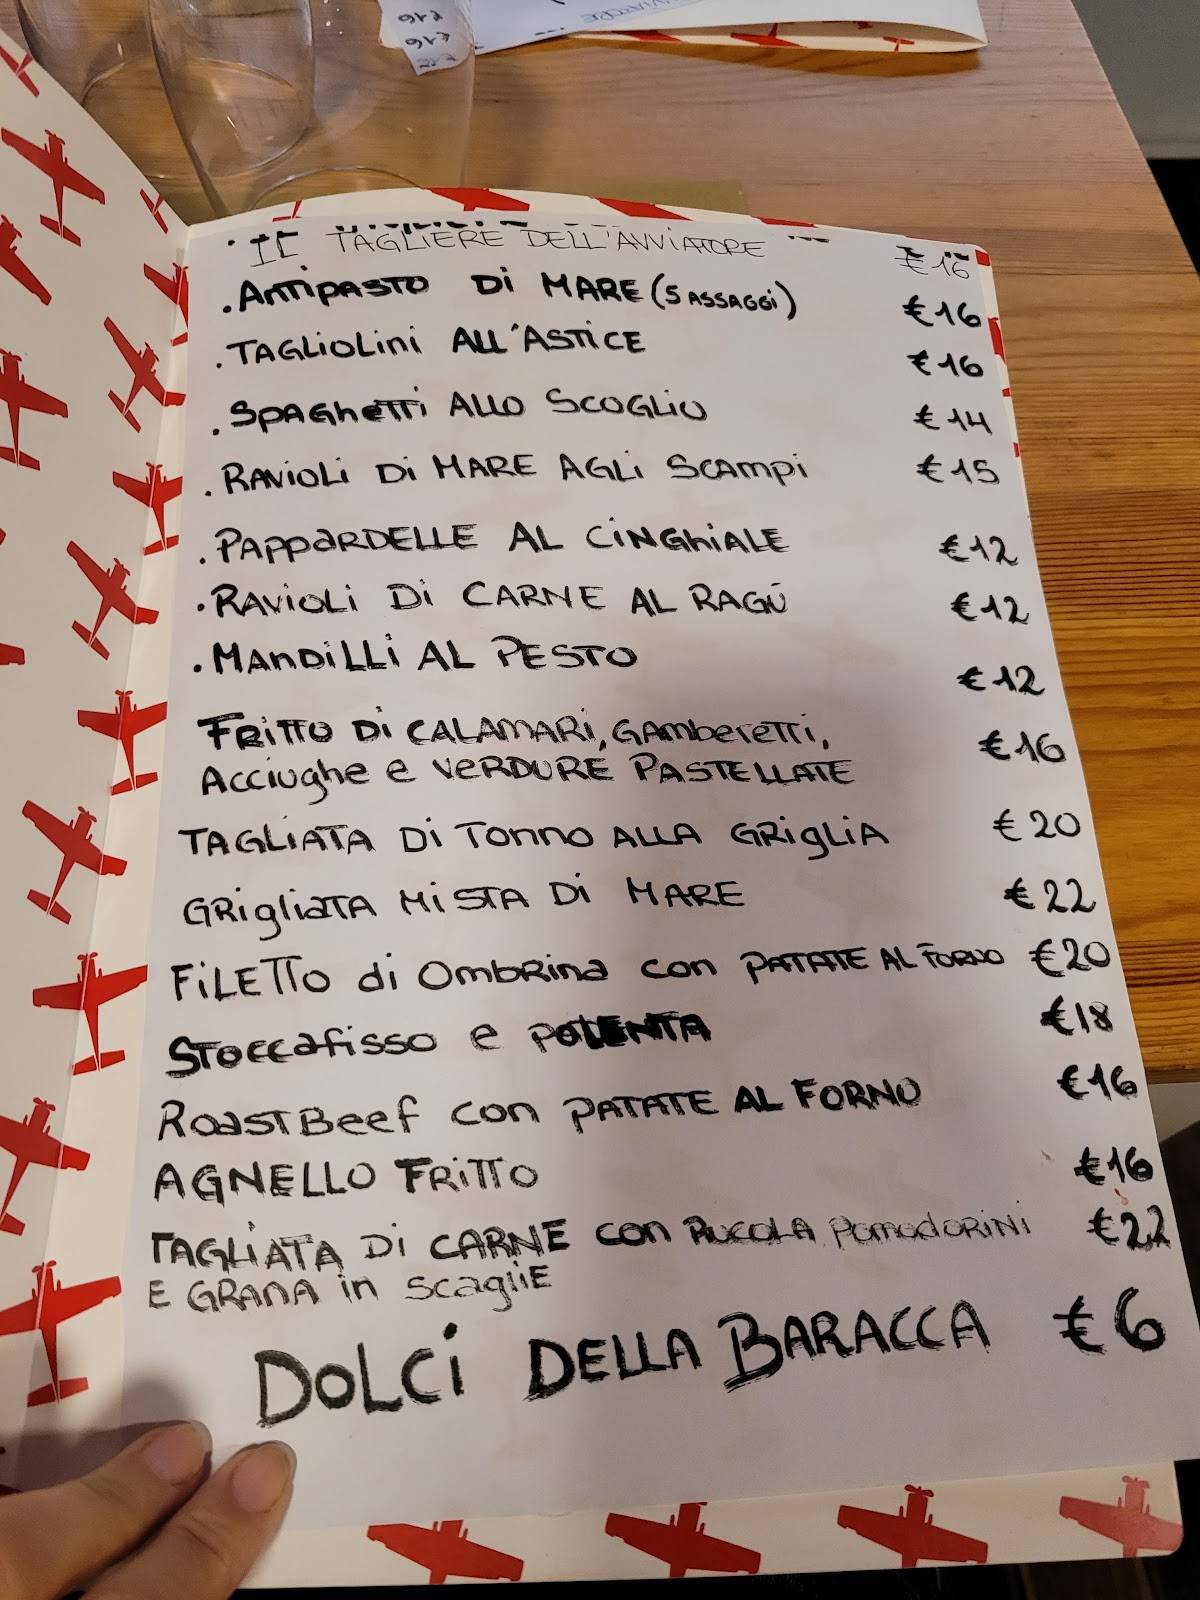 €16
€16
€22
. IL TAGLIERE DELL'AVVIATORE €16
. ANTIPASTO DI MARE (5 ASSAGGI) €16
. TAGLIOLINI ALL'ASTICE €16
. SPAGHETTI ALLO SCOGLIO €14
. RAVIOLI DI MARE AGLI SCAMPI €15
. PAPPARDELLE AL CINGHIALE €12
. RAVIOLI DI CARNE AL RAGÚ €12
. MANDILLI AL PESTO €12
FRITTO DI CALAMARI, GAMBERETTI, €16
ACCIUGHE E VERDURE PASTELLATE
TAGLIATA DI TONNO ALLA GRIGLIA €20
GRIGLIATA MISTA DI MARE €22
FILETTO di OMBRINA con PATATE AL FORNO €20
STOCCAFISSO e POLENTA €18
ROASTBEEF con PATATE AL FORNO €16
AGNELLO FRITTO €16
TAGLIATA DI CARNE con RUCOLA POMODORINI €22
E GRANA in SCAGLIE
DOLCI DELLA BARACCA €6